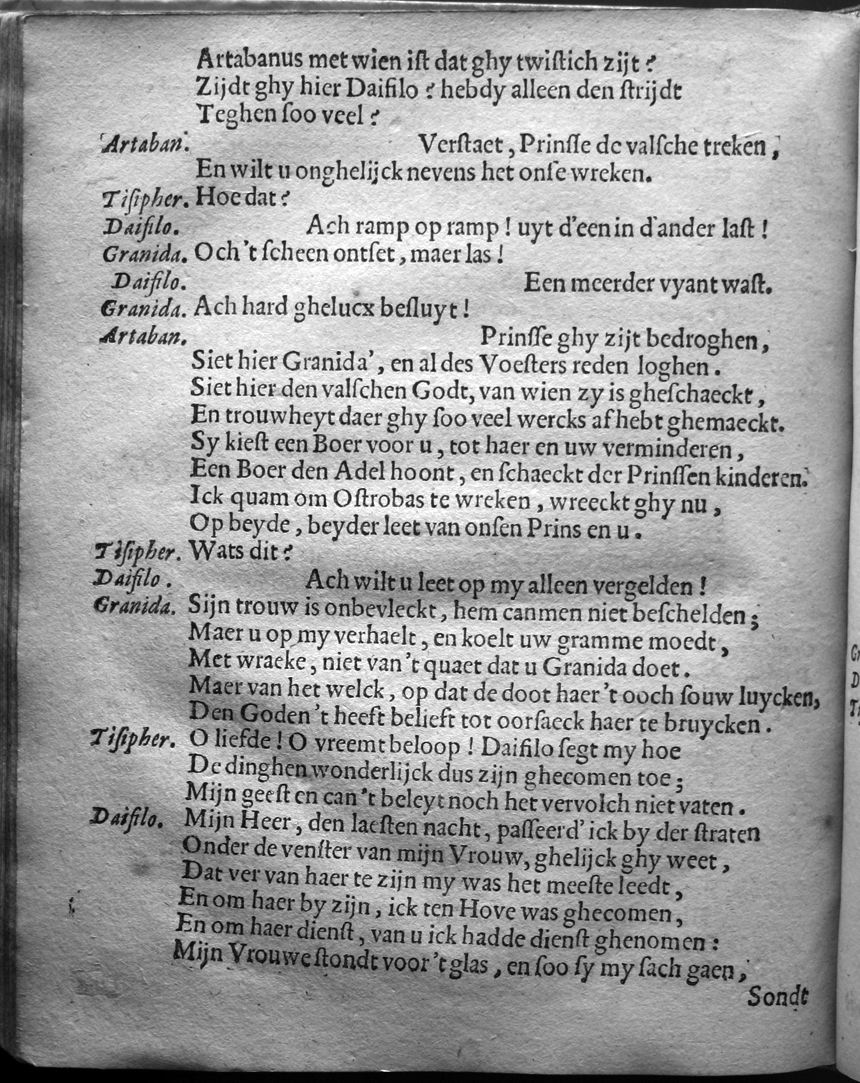 Artabanus met wien iſt dat ghy twiſtich zijt ?
Zijdt ghy hier Daifilo ? hebdy alleen den ſtrijdt
Teghen ſoo veel ?
Artaban. Verſtaet , Prinſſe de valſche treken ,
En wilt u onghelijck nevens het onſe wreken.
Tiſipher. Hoe dat ?
Daifilo. Ach ramp op ramp ! uyt d'een in d'ander laſt !
Granida. Och 't ſcheen ontſet , maer las !
Daifilo. Een meerder vyant waſt.
Granida. Ach hard ghelucx beſluyt !
Artaban. Prinſſe ghy zijt bedroghen ,
Siet hier Granida' , en al des Voeſters reden loghen .
Siet hier den valſchen Godt, van wien zy is gheſchaeckt ,
En trouwheyt daer ghy ſoo veel wercks af hebt ghemaeckt.
Sy kieſt een Boer voor u , tot haer en uw verminderen ,
Een Boer den Adel hoont , en ſchaeckt der Prinſſen kinderen.
Ick quam om Oſtrobas te wreken , wreeckt ghy nu ,
Op beyde , beyder leet van onſen Prins en u .
Tiſipher. Wats dit ?
Daifilo . Ach wilt u leet op my alleen vergelden !
Granida. Sijn trouw is onbevleckt , hem canmen niet beſchelden ;
Maer u op my verhaelt , en koelt uw gramme moedt ,
Met wraeke , niet van 't quaet dat u Granida doet .
Maer van het welck , op dat de doot haer 't ooch ſouw luycken,
Den Goden 't heeft belieft tot oorſaeck haer te bruycken .
Tiſipher. O liefde ! O vreemt beloop ! Daifilo ſegt my hoe
De dinghen wonderlijck dus zijn ghecomen toe ;
Mijn geeſt en can 't beleyt noch het vervolch niet vaten .
Daifilo. Mijn Heer , den laeſten nacht , paſſeerd' ick by der ſtraten
Onder de venſter van mijn Vrouw, ghelijck ghy weet ,
Dat ver van haer te zijn my was het meeſte leedt ,
En om haer by zijn , ick ten Hove was ghecomen ,
En om haer dienſt , van u ick hadde dienſt ghenomen :
Mijn Vrouwe ſtondt voor 't glas , en ſoo ſy my ſach gaen ,
Sondt